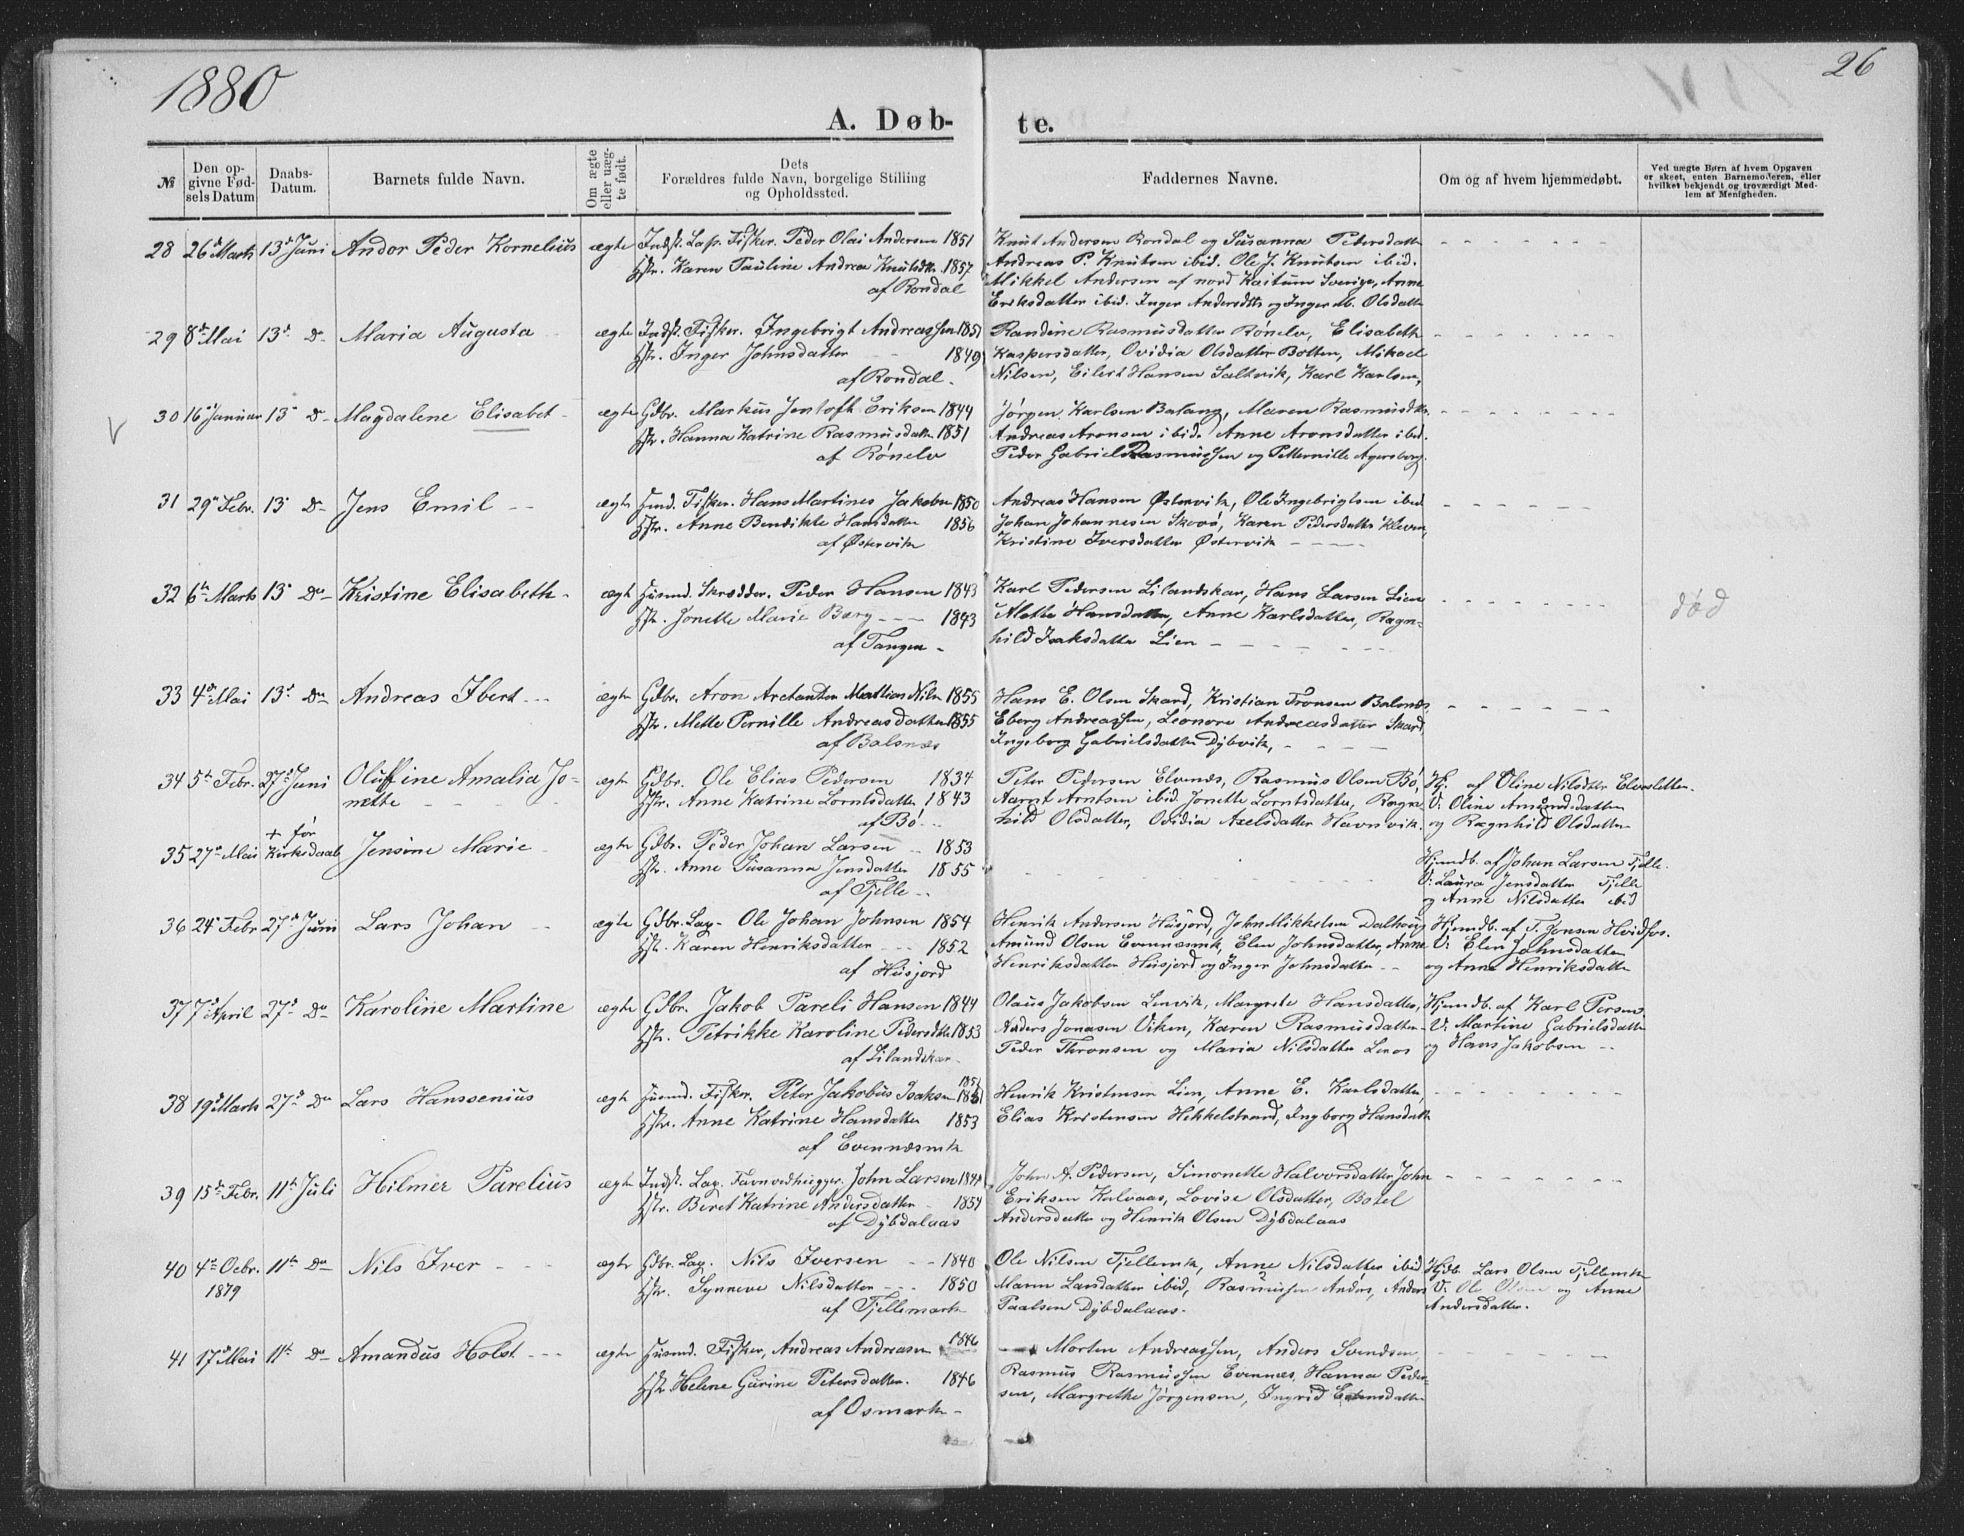 1880
26
A. Døb-
te.
№
Den op-
givne Fød-
sels Datum
Daabs-
Datum.
Barnets fulde Navn.
Om ægte
eller uæg-
te født.
Dets
Forældres fulde Navn, borgelige Stilling
og Opholdssted.
Faddernes Navne.
Om og af hvem hjemmedøbt.
Ved uægte Børn af hvem Opgaven
er skeet, enten Barnemoderen, eller
hvilket bekjendt og troværdigt Med-
lem af Menigheden.
28 26de Marts 13de Juni Andor Peder Kornelius ægte Indst. Lap. Fisker. Peder Olai Andersen 1851
Hstr. Karen Pauline Andrea Knutsdtr. 1857
af Rondal
Knut Andersen Rondal og Susanna Petersdatter
Andreas P. Knutsen ibid. Ole J. Knutsen ibid.
Mikkel Andersen af nord Kaitum Sverige, Anne
Eriksdatter ibid. Inger Andersdtr og Inger M. Olsdatter
29 8de Mai 13de Do Maria Augusta ægte Indst. Fisker. Ingebrigt Andreassen 1851
Hstr. Inger Johnsdatter 1849
af Rondal.
Randine Rasmusdatter Rønelv, Elisabeth
Kaspersdatter, Ovidia Olsdatter Botten, Mikael
Nilsen, Eilert Hansen Saltvik, Karl Karlsen,
30 16de Januar 13de Do Magdalene Elisabet ægte Gdbr. Markus Jentoft Eriksen 1844
Hstr. Hanna Katrine Rasmusdatter 1851
af Rønelv
Jørgen Karlsen Balang, Maren Rasmusdtr.
Andreas Aronsen ibid. Anne Aronsdatter ibid.
Peder Gabriel Rasmussen og Petternille Agersborg.
31 29de Febr. 13de Do Jens Emil ægte Husmd. Fisker. Hans Martines Jakobsen 1850
Hstr. Anne Bendikte Hansdatter 1856
af Østervik
Andreas Hansen Østervik, Ole Ingebrigtsen ibid
Johan Johannesen Skovø, Karen Pedersdatter Kleven,
Kristine Iversdatter Østervik
32 6te Marts 13de Do Kristine Elisabeth ægte Husmd. Skrædder. Peder Hansen 1843
Hstr. Jonette Marie Berg 1843
af Tangen
Karl Pedersen Lilandskar, Hans Larsen Lien
Alethe Hansdatter, Anne Karlsdatter, Ragn-
hild Isaksdatter Lien
død
33 4de Mai 13de Do Andreas Ibert ægte Gdbr. Aron Arctander Mathias Nilsn 1855
Hstr. Mette Pernille Andreasdatter 1855
af Balsnæs
Hans E. Olsen Skard, Kristian Tronsen Balsnes,
Eberg Andreassen, Leonore Andreasdatter Skard,
Ingeborg Gabrielsdatter Dybvik,
34 5te Febr. 27de Juni Oluffine Amalia Jo- ægte Gdbr. Ole Elias Pedersen 1834
nette Hstr. Anne Katrine Lorntsdatter 1843
af Bø
Peter Pedersen Elvenes, Rasmus Olsen Bø,
Aarnt Arntsen ibid. Jonette Lorntsdatter, Ragn-
hild Olsdatter, Ovidia Axelsdatter Havnvik.
Hj. af Oline Nilsdtr Elvesletten.
V: Oline Amundsdatter
og Ragnhild Olsdatter
35 27de Mai + før Kirkedaab Jensine Marie ægte Gdbr. Peder Johan Larsen 1853
Hstr. Anne Susanna Jensdatter 1855
af Tjelle
Hjemdb. af Johan Larsen Tjelle.
V: Laura Jensdatter Tjelle
og Anne Nilsdatter ibid
36 24de Febr 27de Juni Lars Johan ægte Gdbr. Lap Ole Johan Johnsen 1854
Hstr. Karen Henriksdatter 1852
af Husjord
Henrik Andersen Husjord, John Mikkelsen Dalhoug
Amund Olsen Evenæsmk, Elen Johnsdatter, Anne
Henriksdatter Husjord og Inger Johnsdatter
Hjemdb. af T. Jonsen Hvidfos.
V: Elen Johnsdatter
og Anne Henriksdatter
37 7de April 27de Do Karoline Martine ægte Gdbr. Jakob Pareli Hansen 1844
Hstr. Petrikke Karoline Pedersdtr 1853
af Lilandskar
Olaus Jakobsen Lenvik, Margrete Hansdatter,
Anders Jonasen Viken, Karen Rasmusdatter
Peder Thronsen og Maria Nilsdatter Lenes
Hjemdb. af Karl Persen
V: Martine Gabrielsdatter
og Hans Jakobsen
38 19de Marts 27de Do Lars Hanssenius ægte Husmd. Fisker. Peter Jakobus Isaksen 1851
Hstr. Anne Katrine Hansdatter 1853
af Evennæsmk
Henrik Kristensen Lien, Anne E. Karlsdatter,
Elias Kristensen Hekkelstrand, Ingborg Hansdatter
39 15de Febr. 11te Juli Hilmer Parelius ægte Indst. Lap. Favnvedhugger. John Larsen 184
Hstr. Beret Katrine Andersdatter 1851
af Dybdalaas
John A. Pedersen, Simonette Halvorsdatter, John
Eriksen Kvlvaas, Lovise Olsdatter, Botel
Andersdatter og Henrik Olsen Dybdalaas
40 4de Octbr. 11te Do Nils Iver ægte Gdbr. Lap. Nils Iversen 1840
1879 Hstr. Synneve Nilsdatter 1850
af Tjellemark
Ole Nilsen Tjellemk, Anne Nilsdatter ibid
Maren Larsdatter ibid, Rasmussen Anders, Anders
Paalsen Dybdalaas.
Hjdb. Lars Olsen Tjellemk
V: Ole Olsen og Anne
Andersdatter.
41 17de Mai 11te Do Amandus Holst ægte Husmd. Fisker, Andreas Andreasen 1846
Hstr Helene Gurine Petersdatter. 1846
af Osmark
Morten Andreassen, Anders Svendsen,
Rasmus Rasmussen Evennes, Hanna Peder-
sen, Margrethe Jørgensen, Ingrid Estensdatter